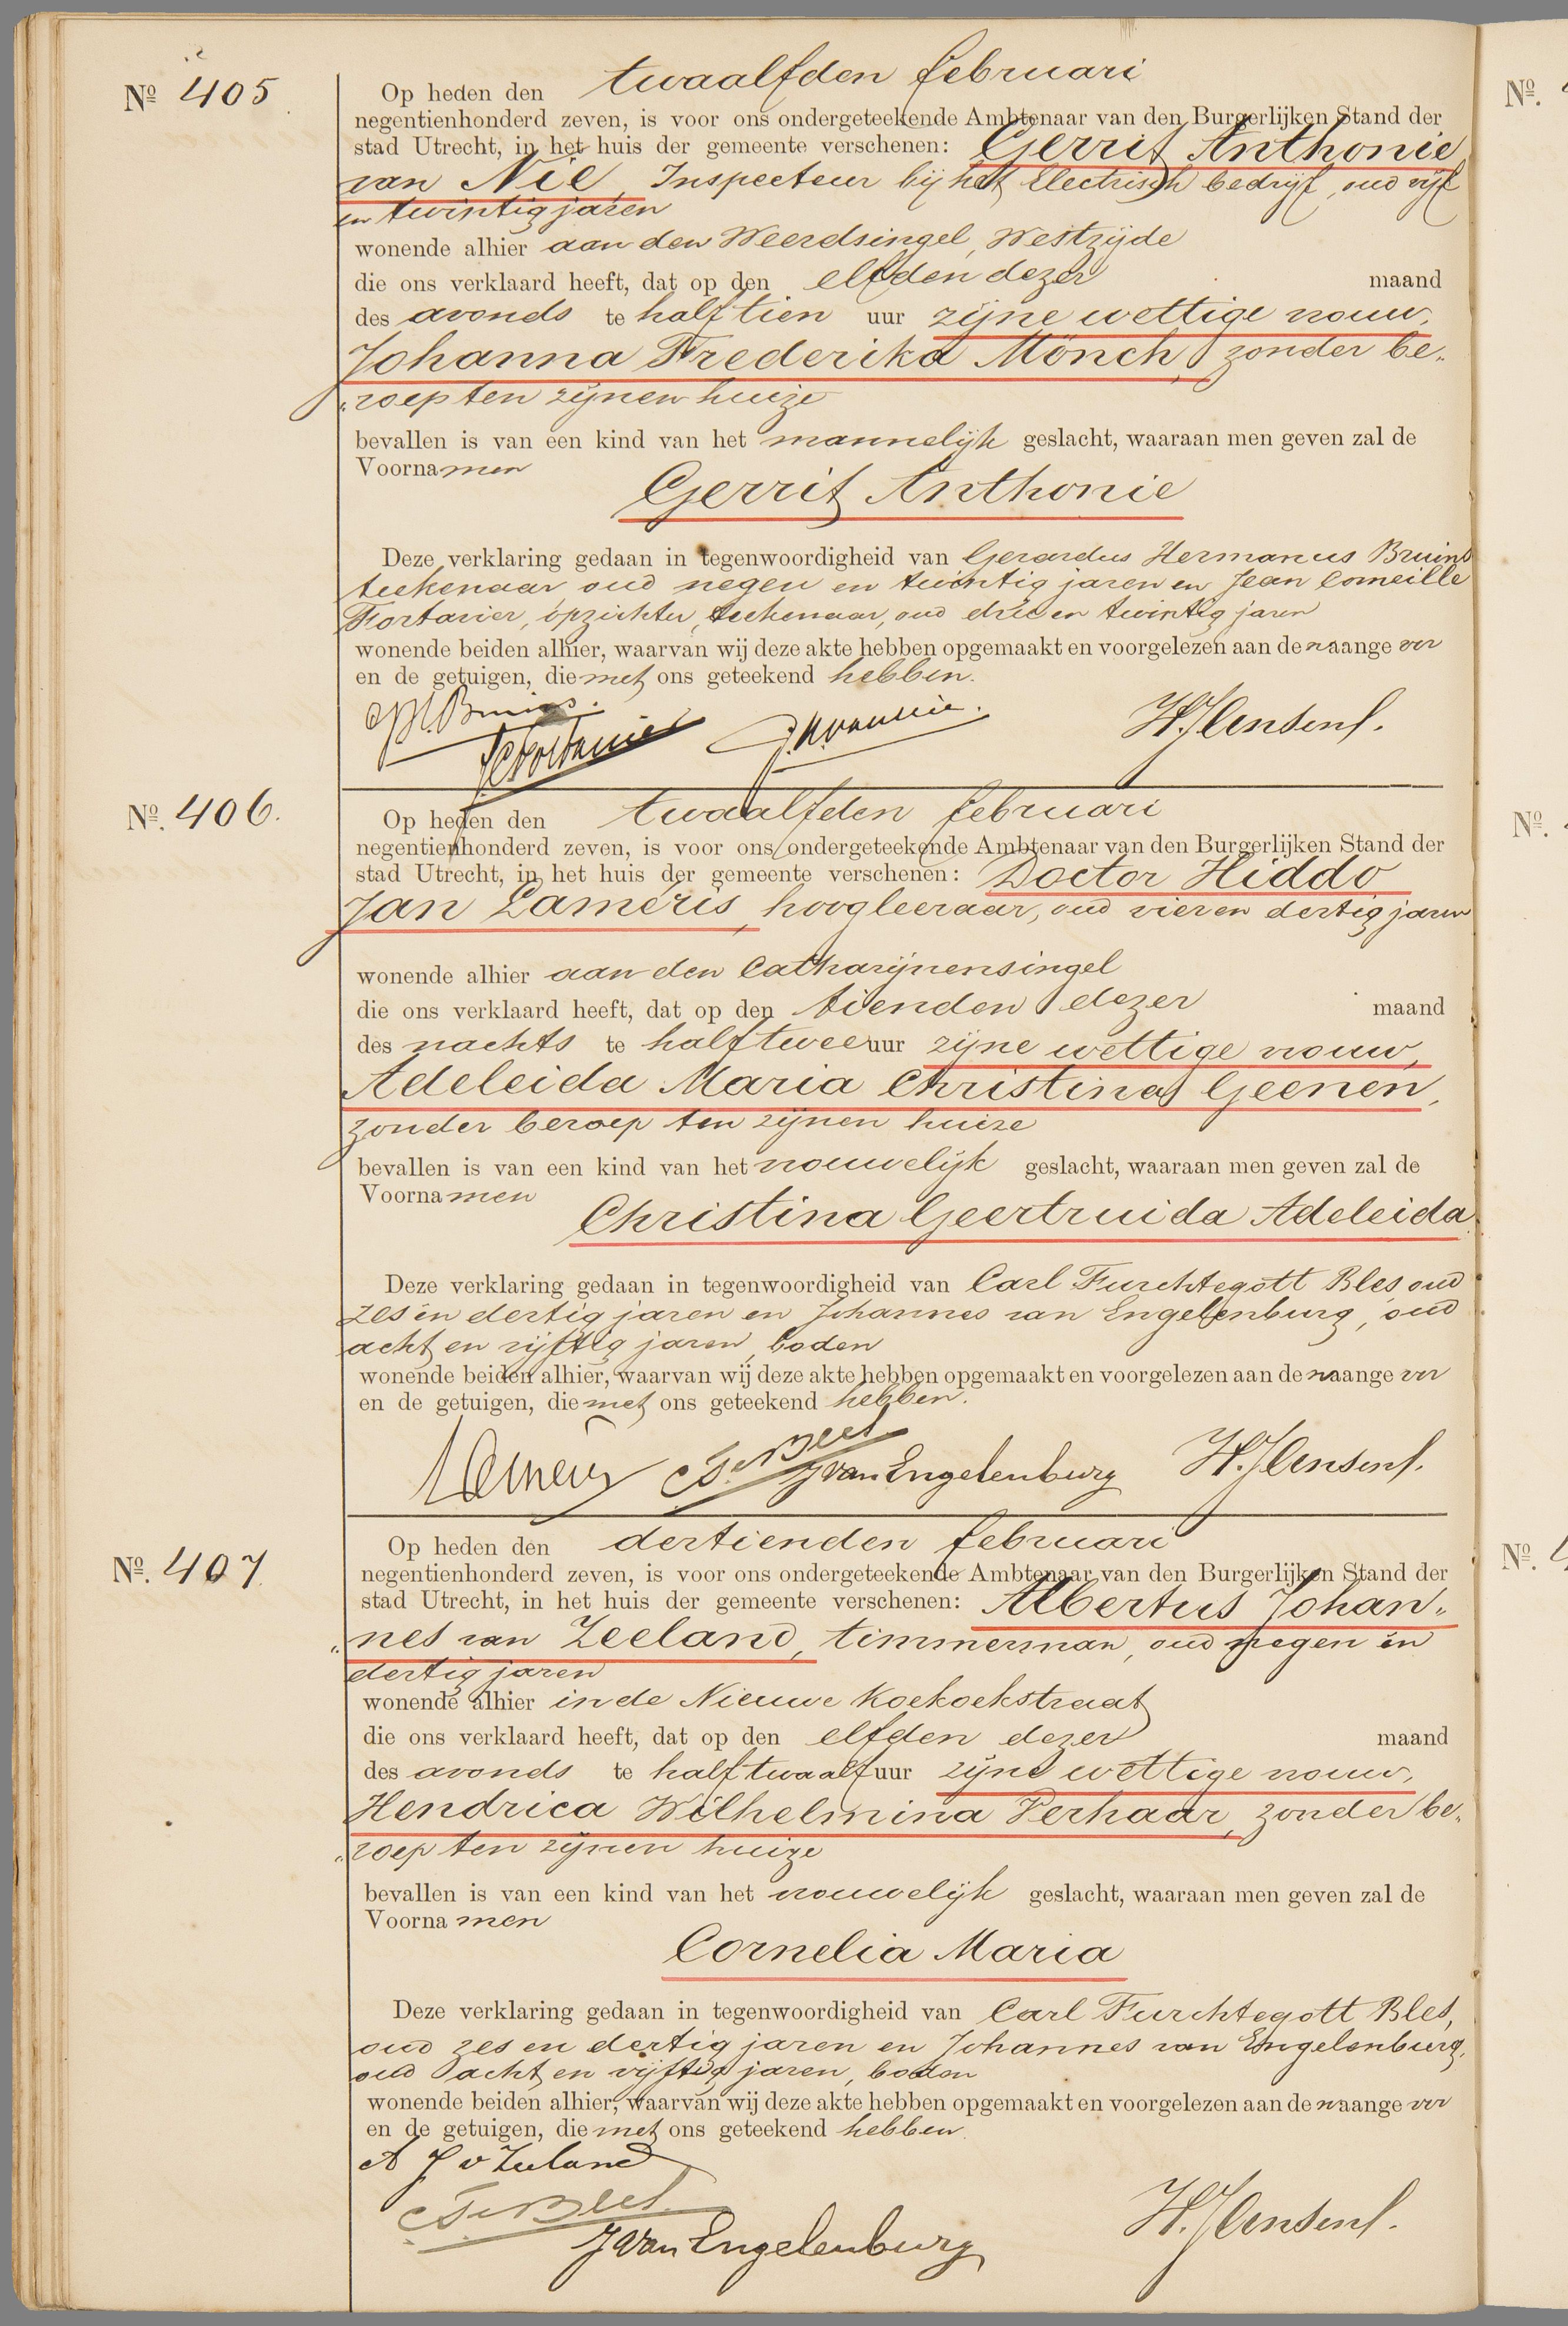 Nº 405
Op heden den twaalfden februari
negentienhonderd zeven, is voor ons ondergeteekende Ambtenaar van den Burgerlijken Stand der
stad Utrecht, in het huis der gemeente verschenen: Gerrit Anthonie
van Nie, Inspecteur bij het Electrisch bedrijf, oud vijf
en twintig jaren
wonende alhier aan den Weerdsingel, Westzijde
die ons verklaard heeft, dat op den elfden dezer maand
des avonds te half tien uur zijne wettige vrouw,
Johanna Frederika Mönch, zonder be-
"roep ten zijnen huize
bevallen is van een kind van het mannelijk geslacht, waaraan men geven zal de
Voornamen
Gerrit Anthonie
Deze verklaring gedaan in tegenwoordigheid van Gerardus Hermanus Bruins
teekenaar oud negen en twintig jaren en Jean Corneille
Fortanier, opzichter, teekenaar, oud drie en twintig jaren
wonende beiden alhier, waarvan wij deze akte hebben opgemaakt en voorgelezen aan de naange ver
en de getuigen, die met ons geteekend hebben.
GH. Bruins.
JCFortanier
G.A.van Nie.
H.Jansen f.
Nº. 406.
Op heden den twaalfden februari
negentienhonderd zeven, is voor ons ondergeteekende Ambtenaar van den Burgerlijken Stand der
stad Utrecht, in het huis der gemeente verschenen: Doctor Hiddo
Jan Laméris, hoogleeraar, oud vier en dertig jaren
wonende alhier aan den Catharijnensingel
die ons verklaard heeft, dat op den tienden dezer maand
des nachts te half twee uur zijne wettige vrouw,
Adeleida Maria Christina Geenen,
zonder beroep ten zijnen huize
bevallen is van een kind van het vrouwelijk geslacht, waaraan men geven zal de
Voornamen
Christina Geertruida Adeleida
Deze verklaring gedaan in tegenwoordigheid van Carl Furchtegott Bles, oud
zes en dertig jaren en Johannes van Engelenburg, oud
acht en vijftig jaren, boden
wonende beiden alhier, waarvan wij deze akte hebben opgemaakt en voorgelezen aan de naange ver
en de getuigen, die met ons geteekend hebben.
Laméris
CF Bles
J van Engelenburg
H.Jansen f.
Nº. 407
Op heden den dertienden februari
negentienhonderd zeven, is voor ons ondergeteekende Ambtenaar van den Burgerlijken Stand der
stad Utrecht, in het huis der gemeente verschenen: Albertus Johan-
"nes van Zeeland, timmerman, oud negen en
dertig jaren
wonende alhier in de Nieuwe Koekoekstraat
die ons verklaard heeft, dat op den elfden dezer maand
des avonds te half twaalf uur zijne wettige vrouw,
Hendrica Wilhelmina Verhaar, zonder be-
"roep ten zijnen huize
bevallen is van een kind van het vrouwelijk geslacht, waaraan men geven zal de
Voornamen
Cornelia Maria
Deze verklaring gedaan in tegenwoordigheid van Carl Furchtegott Bles,
oud zes en dertig jaren en Johannes van Engelenburg,
oud acht en vijftig jaren, boden
wonende beiden alhier, waarvan wij deze akte hebben opgemaakt en voorgelezen aan de naange ver
en de getuigen, die met ons geteekend hebben
A J v Zeeland
CF Bles
J van Engelenburg
H.Jansen f.
Nº.
Nº.
Nº.